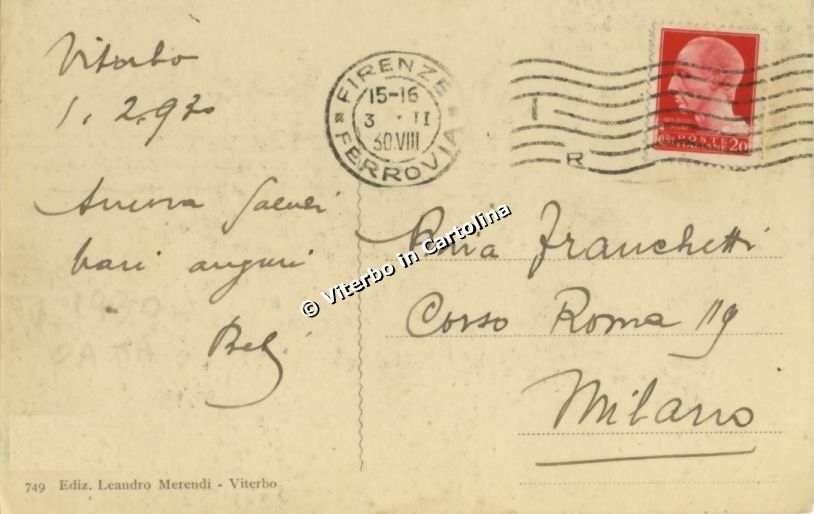 Viterbo
1. 2. 930
Ancora saluti
bari auguri
FIRENZE
15-16
3 · II
30 VIII
FERROVIA
R
POSTE
ITALIANE 20
© Viterbo in Cartolina
Franchetti
Corso Roma 119
Milano
749 Ediz. Leandro Merendi - Viterbo